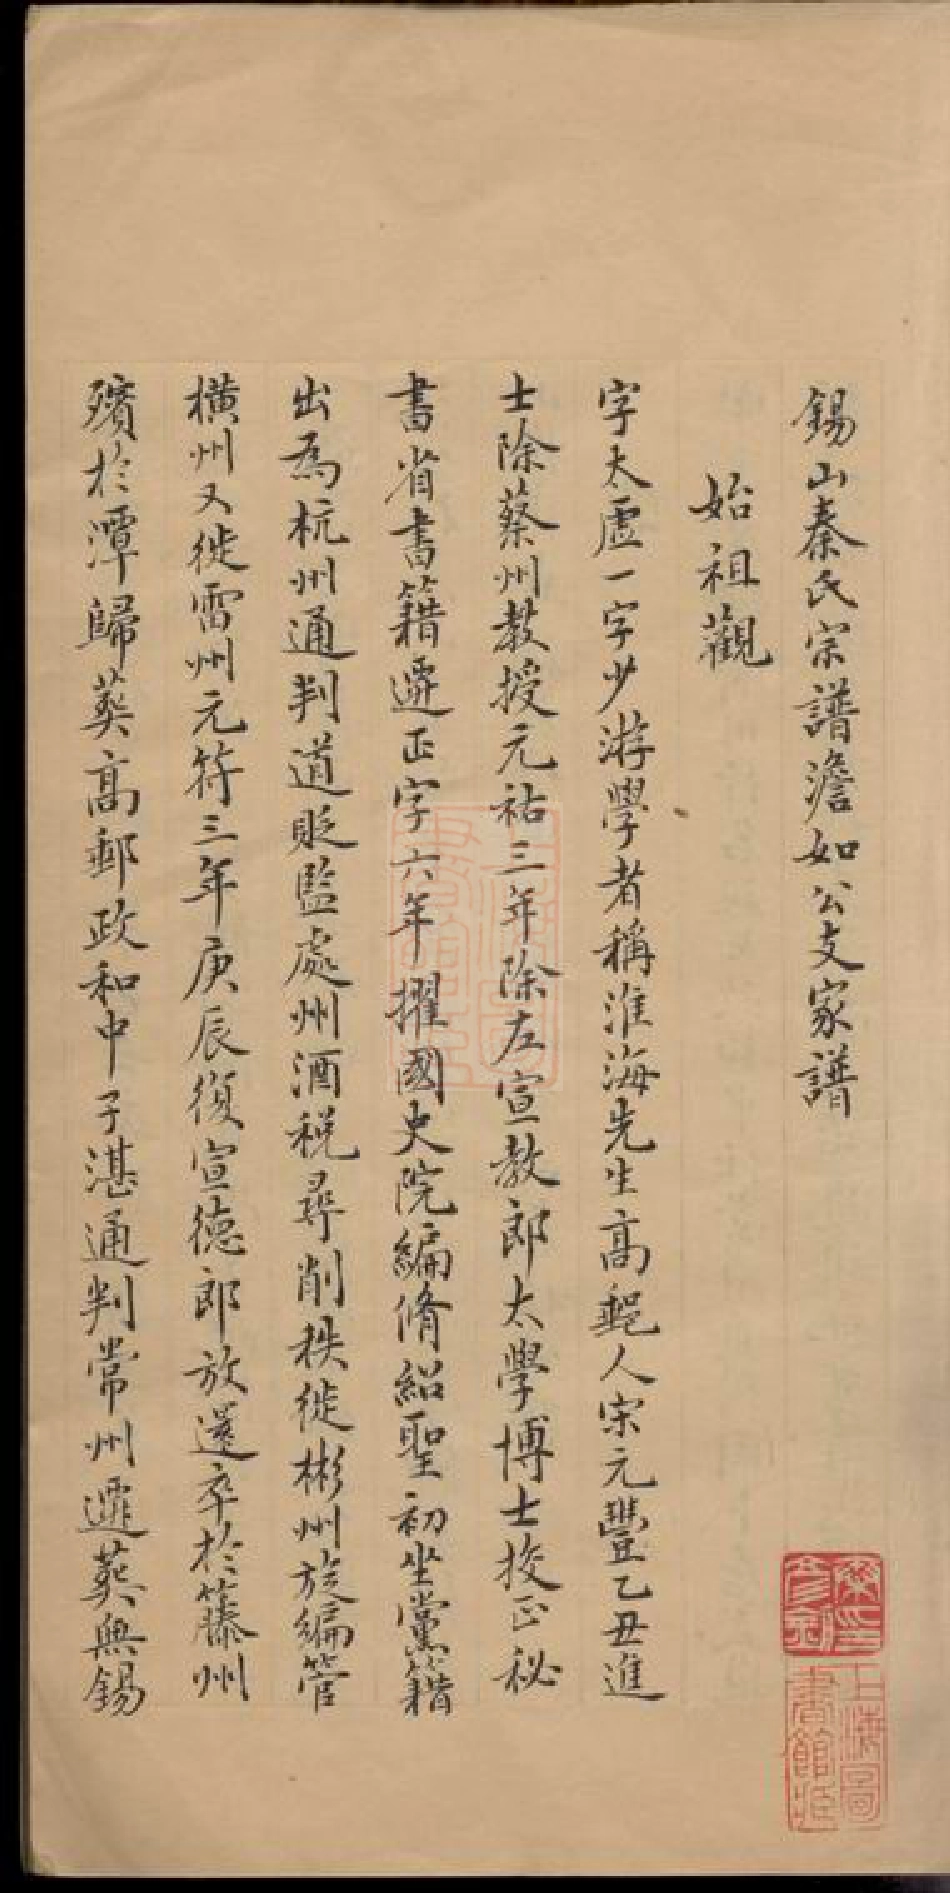 錫山秦氏宗譜澹如公支家譜
始祖觀
字太虛一字少游學者稱淮海先生高郵人宋元豐乙丑進
士除蔡州教授元祐三年除左宣教郎太學博士挍正秘
書省書籍遷正字六年擢國史院編脩紹聖初坐黨籍
出為杭州通判道貶監處州酒稅尋削秩徙彬州旋編管
橫州又徙雷州元符三年庚辰復宣德郎放還卒於藤州
殯於潭歸葬高郵政和中子湛通判常州遷葬無錫
上海圖書館藏
上海圖書館藏